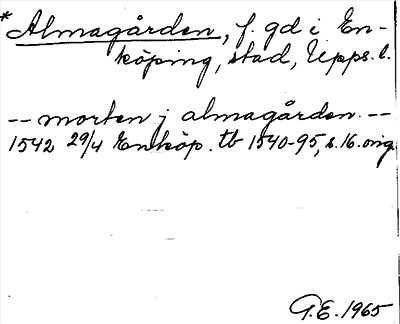 * Almagården, f. gd i En-
köping, stad, Upps. l.
-- morten j almagården. --
1542 29/4 Enköp. tb 1540-95, s. 16. orig.
G.E. 1965